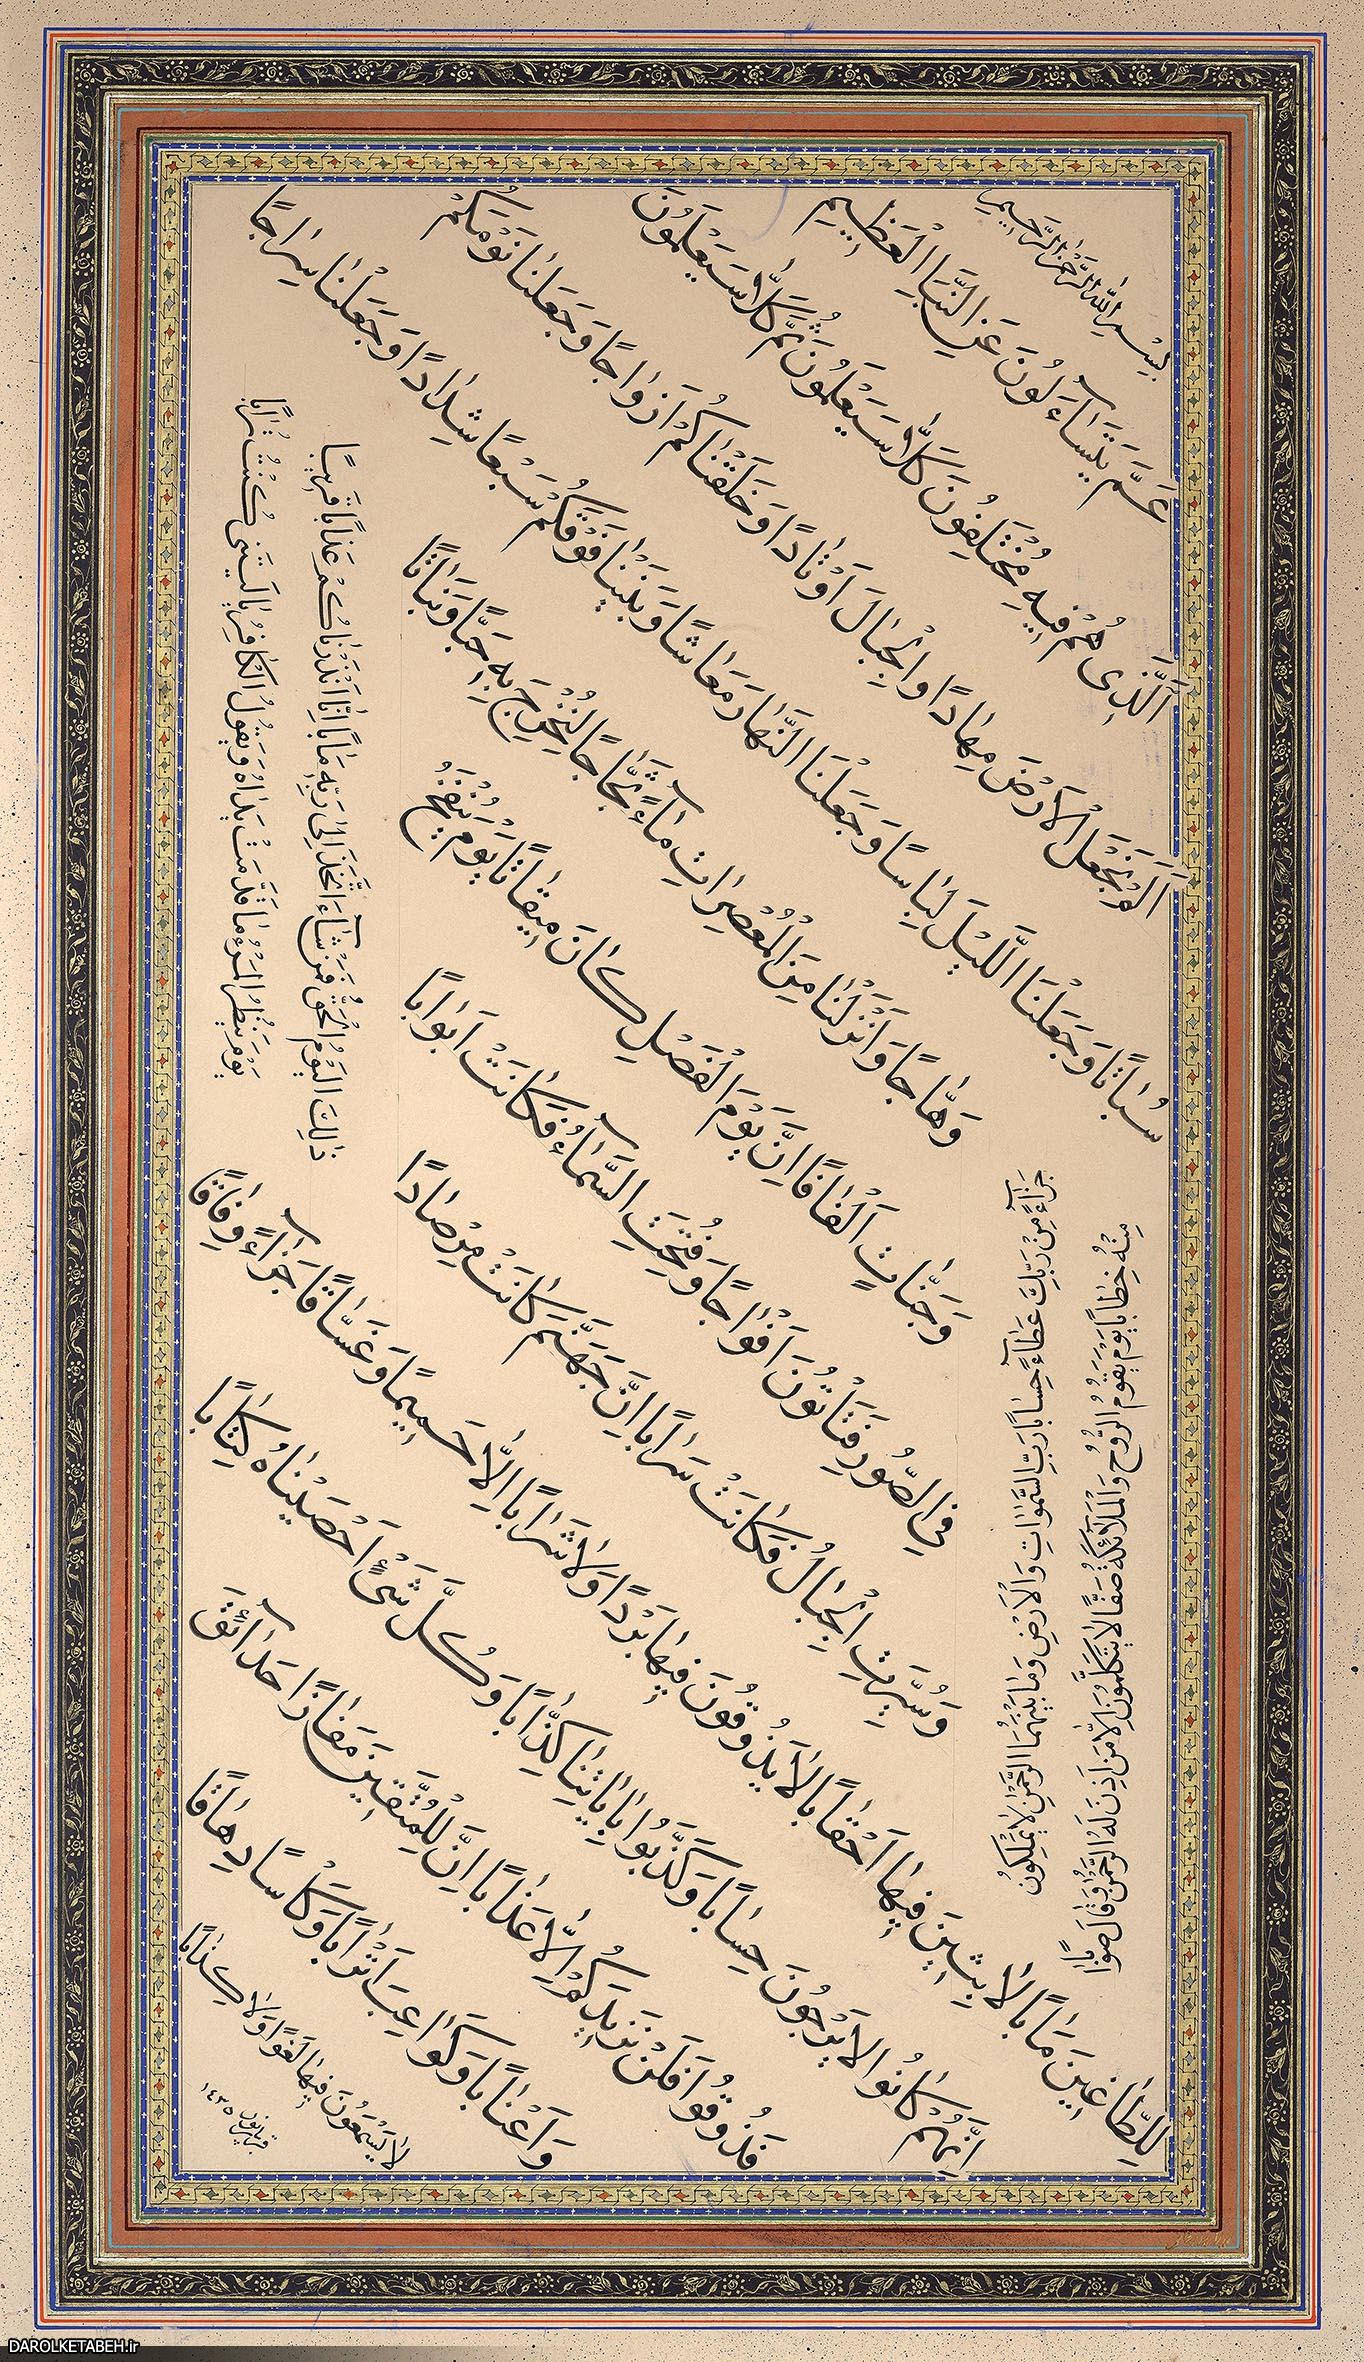 بِسْمِ اللّٰهِ الرَّحْمٰنِ الرَّحِيمِ
عَمَّ يَتَسَاۤءَلُونَ عَنِ النَّبَاِ الْعَظِيمِ
اَلَّذِى هُمْ فِيهِ مُخْتَلِفُونَ كَلَّا سَيَعْلَمُونَ ثُمَّ كَلَّا سَيَعْلَمُونَ
اَلَمْ نَجْعَلِ الْاَرْضَ مِهَادًا وَالْجِبَالَ اَوْتَادًا وَخَلَقْنَاكُمْ اَزْوَاجًا وَجَعَلْنَا نَوْمَكُمْ
سُبَاتًا وَجَعَلْنَا اللَّيْلَ لِبَاسًا وَجَعَلْنَا النَّهَارَ مَعَاشًا وَبَنَيْنَا فَوْقَكُمْ سَبْعًا شِدَادًا وَجَعَلْنَا سِرَاجًا
وَهَّاجًا وَاَنْزَلْنَا مِنَ الْمُعْصِرَاتِ مَاۤءً ثَجَّاجًا لِنُخْرِجَ بِهِ حَبًّا وَنَبَاتًا
وَجَنَّاتٍ اَلْفَافًا اِنَّ يَوْمَ الْفَصْلِ كَانَ مِيقَاتًا يَوْمَ يُنْفَخُ
فِى الصُّورِ فَتَاْتُونَ اَفْوَاجًا وَفُتِحَتِ السَّمَاۤءُ فَكَانَتْ اَبْوَابًا
وَسُيِّرَتِ الْجِبَالُ فَكَانَتْ سَرَابًا اِنَّ جَهَنَّمَ كَانَتْ مِرْصَادًا
لِلطَّاغِينَ مَاٰبًا لَابِثِينَ فِيهَا اَحْقَابًا لَا يَذُوقُونَ فِيهَا بَرْدًا وَلَا شَرَابًا اِلَّا حَمِيمًا وَغَسَّاقًا جَزَاۤءً وِفَاقًا
اِنَّهُمْ كَانُوا لَا يَرْجُونَ حِسَابًا وَكَذَّبُوا بِاٰيَاتِنَا كِذَّابًا وَكُلَّ شَىْءٍ اَحْصَيْنَاهُ كِتَابًا
فَذُوقُوا فَلَنْ نَزِيدَكُمْ اِلَّا عَذَابًا اِنَّ لِلْمُتَّقِينَ مَفَازًا حَدَاۤئِقَ
وَاَعْنَابًا وَكَوَاعِبَ اَتْرَابًا وَكَاْسًا دِهَاقًا
لَا يَسْمَعُونَ فِيهَا لَغْوًا وَلَا كِذَّابًا
جَزَاۤءً مِنْ رَبِّكَ عَطَاۤءً حِسَابًا رَبِّ السَّمٰوَاتِ وَالْاَرْضِ وَمَا بَيْنَهُمَا الرَّحْمٰنِ لَا يَمْلِكُونَ
مِنْهُ خِطَابًا يَوْمَ يَقُومُ الرُّوحُ وَالْمَلٰۤئِكَةُ صَفًّا لَا يَتَكَلَّمُونَ اِلَّا مَنْ اَذِنَ لَهُ الرَّحْمٰنُ وَقَالَ صَوَابًا
ذٰلِكَ الْيَوْمُ الْحَقُّ فَمَنْ شَاۤءَ اتَّخَذَ اِلٰى رَبِّهِ مَاٰبًا اِنَّا اَنْذَرْنَاكُمْ عَذَابًا قَرِيبًا
يَوْمَ يَنْظُرُ الْمَرْءُ مَا قَدَّمَتْ يَدَاهُ وَيَقُولُ الْكَافِرُ يَا لَيْتَنِى كُنْتُ تُرَابًا
١٤٣٥
DAROLKETABEH.ir